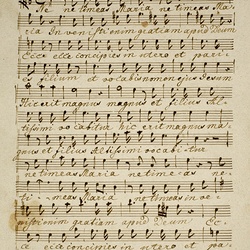 Ne ne timeas Maria ne timeas Ma
ria In ven isti enim gratiam apud Deum
Ecce ela concipies in utero et pari
es filium et vocabis nomen ejus Jesum
Hic erit magnus magnus et filius Al
tissimi vocabitur hic erit magnus ma
gnus et filius Altissimi vocabitur
ne timeas Maria ne time as ne
ti meas Maria ne timeas in ve
nisti enim gratiam apud Deum Ec
ce ela concipies in utero et pa